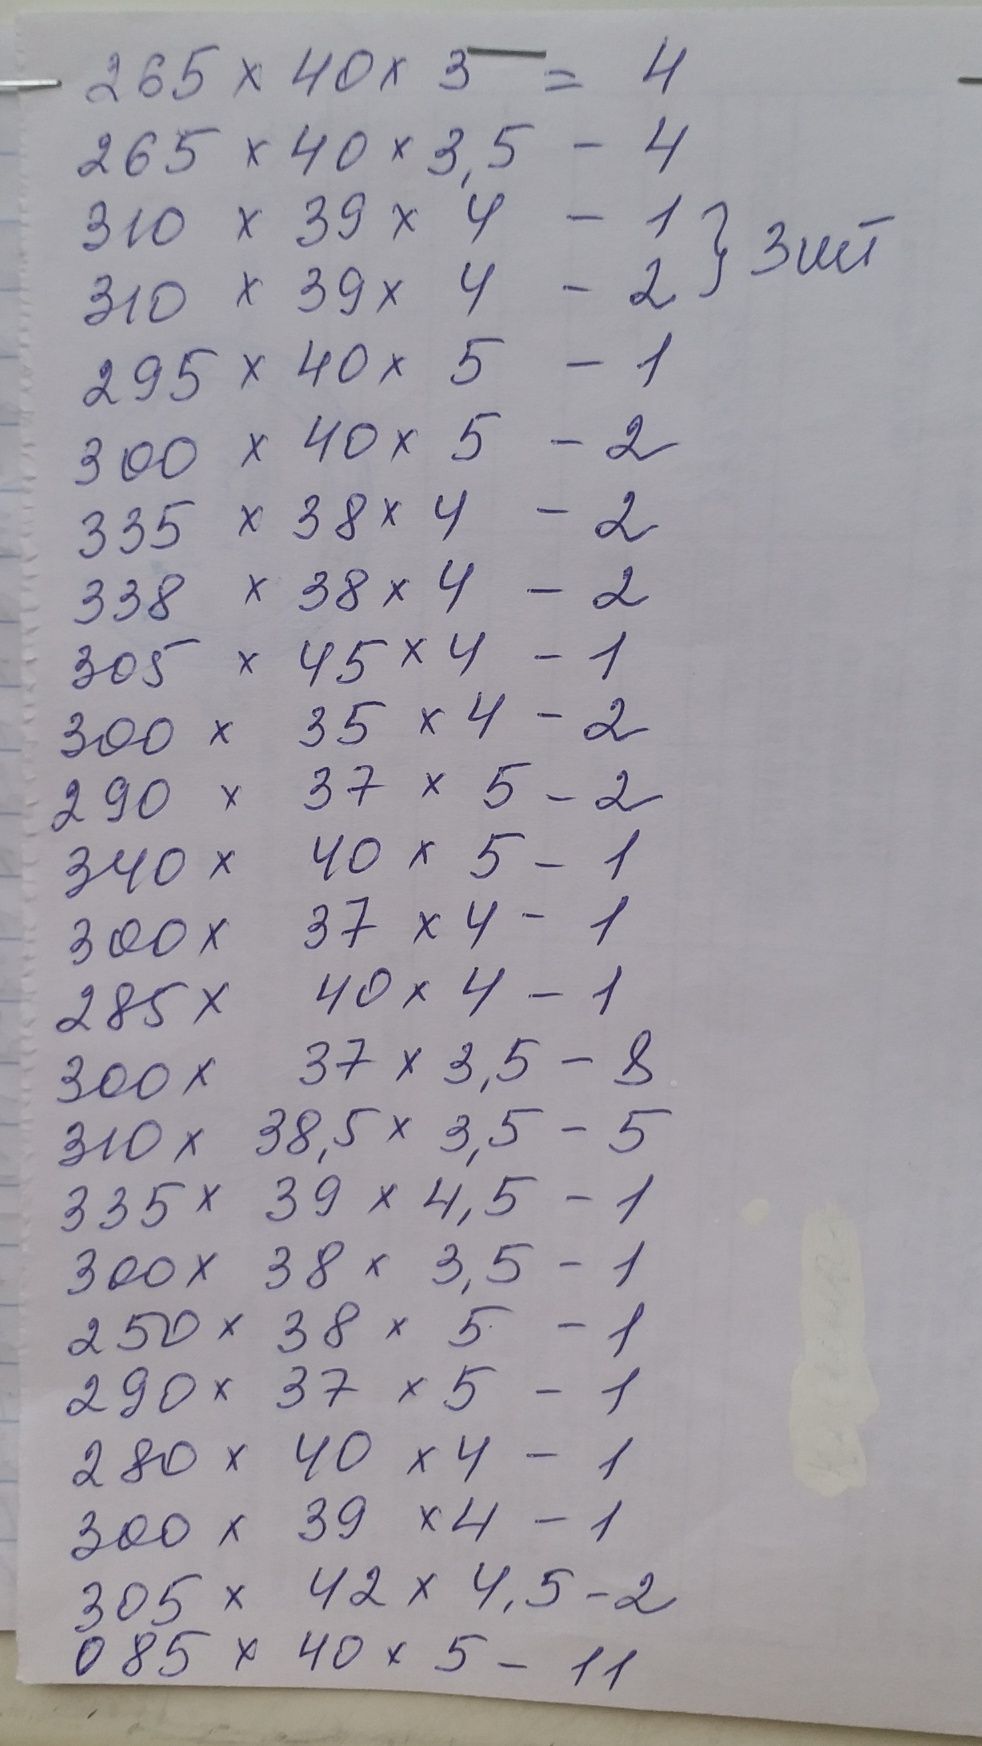 265 x 40 x 3 = 4
265 x 40 x 3,5 - 4
310 x 39 x 4 - 1 } 3 шт
310 x 39 x 4 - 2
295 x 40 x 5 - 1
300 x 40 x 5 - 2
335 x 38 x 4 - 2
338 x 38 x 4 - 2
305 x 45 x 4 - 1
300 x 35 x 4 - 2
290 x 37 x 5 - 2
340 x 40 x 5 - 1
300 x 37 x 4 - 1
285 x 40 x 4 - 1
300 x 37 x 3,5 - 8
310 x 38,5 x 3,5 - 5
335 x 39 x 4,5 - 1
300 x 38 x 3,5 - 1
250 x 38 x 5 - 1
290 x 37 x 5 - 1
280 x 40 x 4 - 1
300 x 39 x 4 - 1
305 x 42 x 4,5 - 2
085 x 40 x 5 - 11